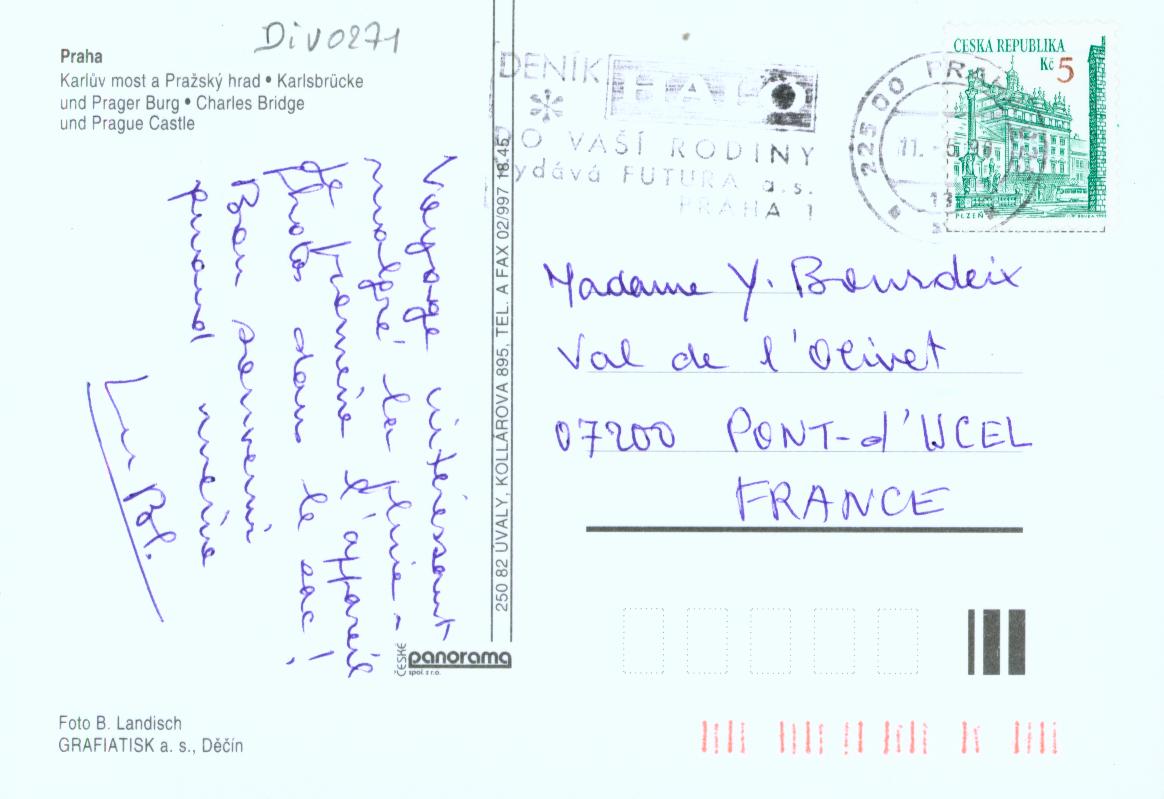 Div0271
Praha
Karlův most a Pražský hrad • Karlsbrücke
und Prager Burg • Charles Bridge
und Prague Castle
Voyage intéressant
malgré la pluie -
Je promène l'appareil
photo dans le sac !
Bon souvenir
quand même
250 82 ÚVALY, KOLLÁROVA 895, TEL. A FAX 02/997 18 45
ČESKÉ
panorama
spol. s r.o.
Foto B. Landisch
GRAFIATISK a. s., Děčín
DENÍK
O VAŠÍ RODINY
vydává FUTURA a.s.
PRAHA 1
225 00 PRAHA
11. -5.
ČESKÁ REPUBLIKA
Kč 5
PLZEŇ
Madame Y. Bourdeix
Val de l'Olivet
07200 PONT-d'UCEL
FRANCE